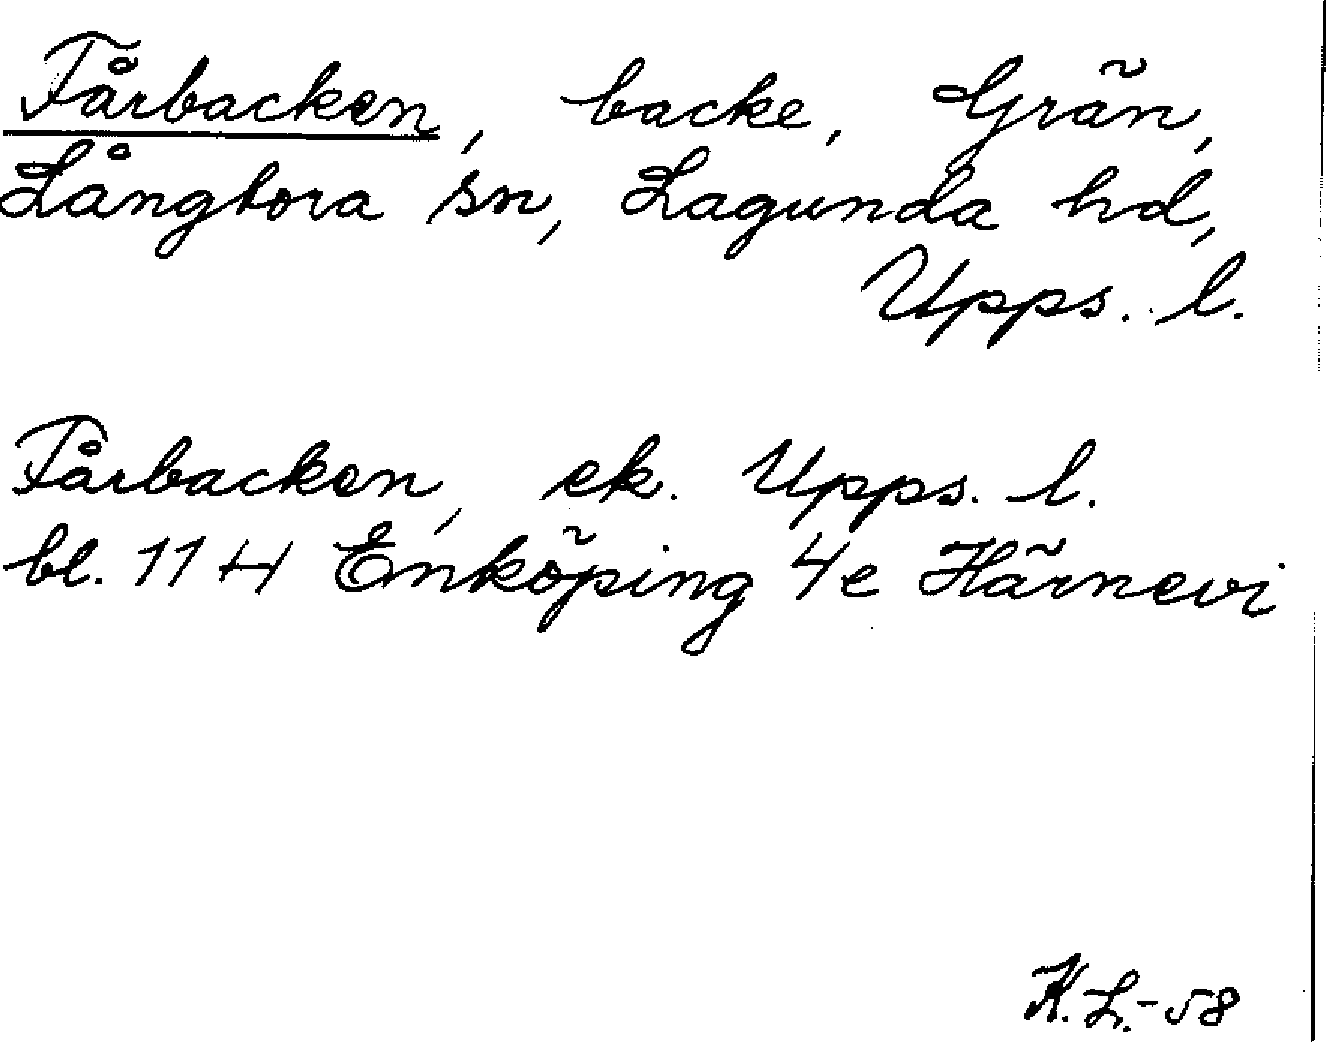 Fårbacken, backe, Grän,
Långtora sn, Lagunda hd,
Upps. l.
Fårbacken, ek. Upps. l.
bl. 11 H Enköping 4e Härnevi
K. L. - 58